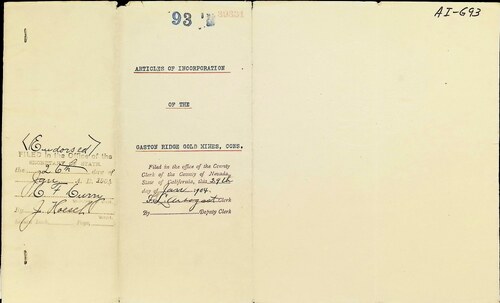 93
39651
AI-693
ARTICLES OF INCORPORATION
OF THE
GASTON RIDGE GOLD MINES, CONS.
Filed in the office of the County
Clerk of the County of Nevada,
State of California, this 29th
day of June 1904.
Clerk
By Deputy Clerk
(Endorsed)
FILED in the Office of the
SECRETARY OF STATE
the 26th day of
A. D. 190
C. F. Curry
By J. Hoesch